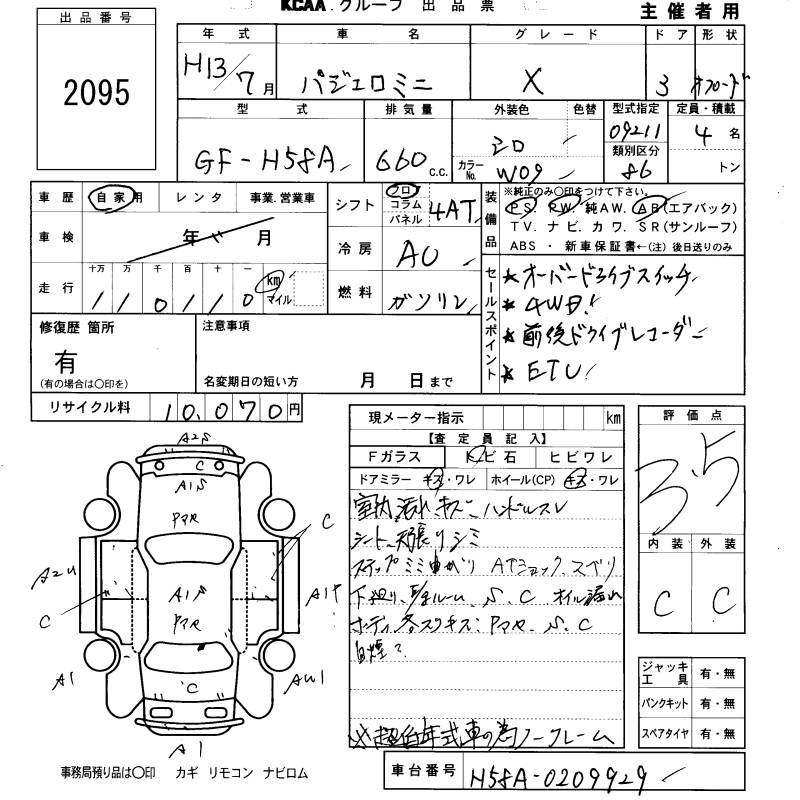 KCAA.グループ 出品票
主催者用
出品番号
2095
年式 車名 グレード ドア 形状
H13/7月 パジェロミニ X 3 オフロード
型式 排気量 外装色 色替 型式指定 定員・積載
09211
GF-H58A 660 c.c. シロ 類別区分 4名
カラーNo. W09 86 トン
車歴 自家用 レンタ 事業.営業車
車検 年 月
走行 十万 万 千 百 十 一
110110 km マイル
シフト フロ コラム パネル 4AT
冷房 AC
燃料 ガソリン
装備品
※純正のみ○印をつけて下さい。
PS. PW. 純AW. AB(エアバック)
TV. ナビ. カワ. SR(サンルーフ)
ABS ・ 新車保証書←(注) 後日送りのみ
セールスポイント
★オーバードライブスイッチ
★4WD!
★前後ドライブレコーダー
★ETC!
修復歴 箇所
有
(有の場合は○印を)
注意事項
名変期日の短い方 月 日まで
リサイクル料 10,070円
現メーター指示 km
【査定員記入】
Fガラス トビ石 ヒビワレ
ドアミラー キズ・ワレ ホイール(CP) キズ・ワレ
室内汚れ キズ ハンドルスレ
シート、天張りシミ
ステップミミ曲がり ATショック、スベリ
下廻り、E/gルーム、S、C オイル漏れ
ボディ各スリキズ: PマR、S、C
自煙?
※超低年式車の為ノークレーム
評価点
3.5
内装 外装
C C
ジャッキ工具 有・無
パンクキット 有・無
スペアタイヤ 有・無
車台番号 H58A-0209929
A2S
C
A1S
PマR
C
A2U
C
A1S
PマR
A1T
A1
C
AW1
A1
事務局預り品は○印 カギ リモコン ナビロム